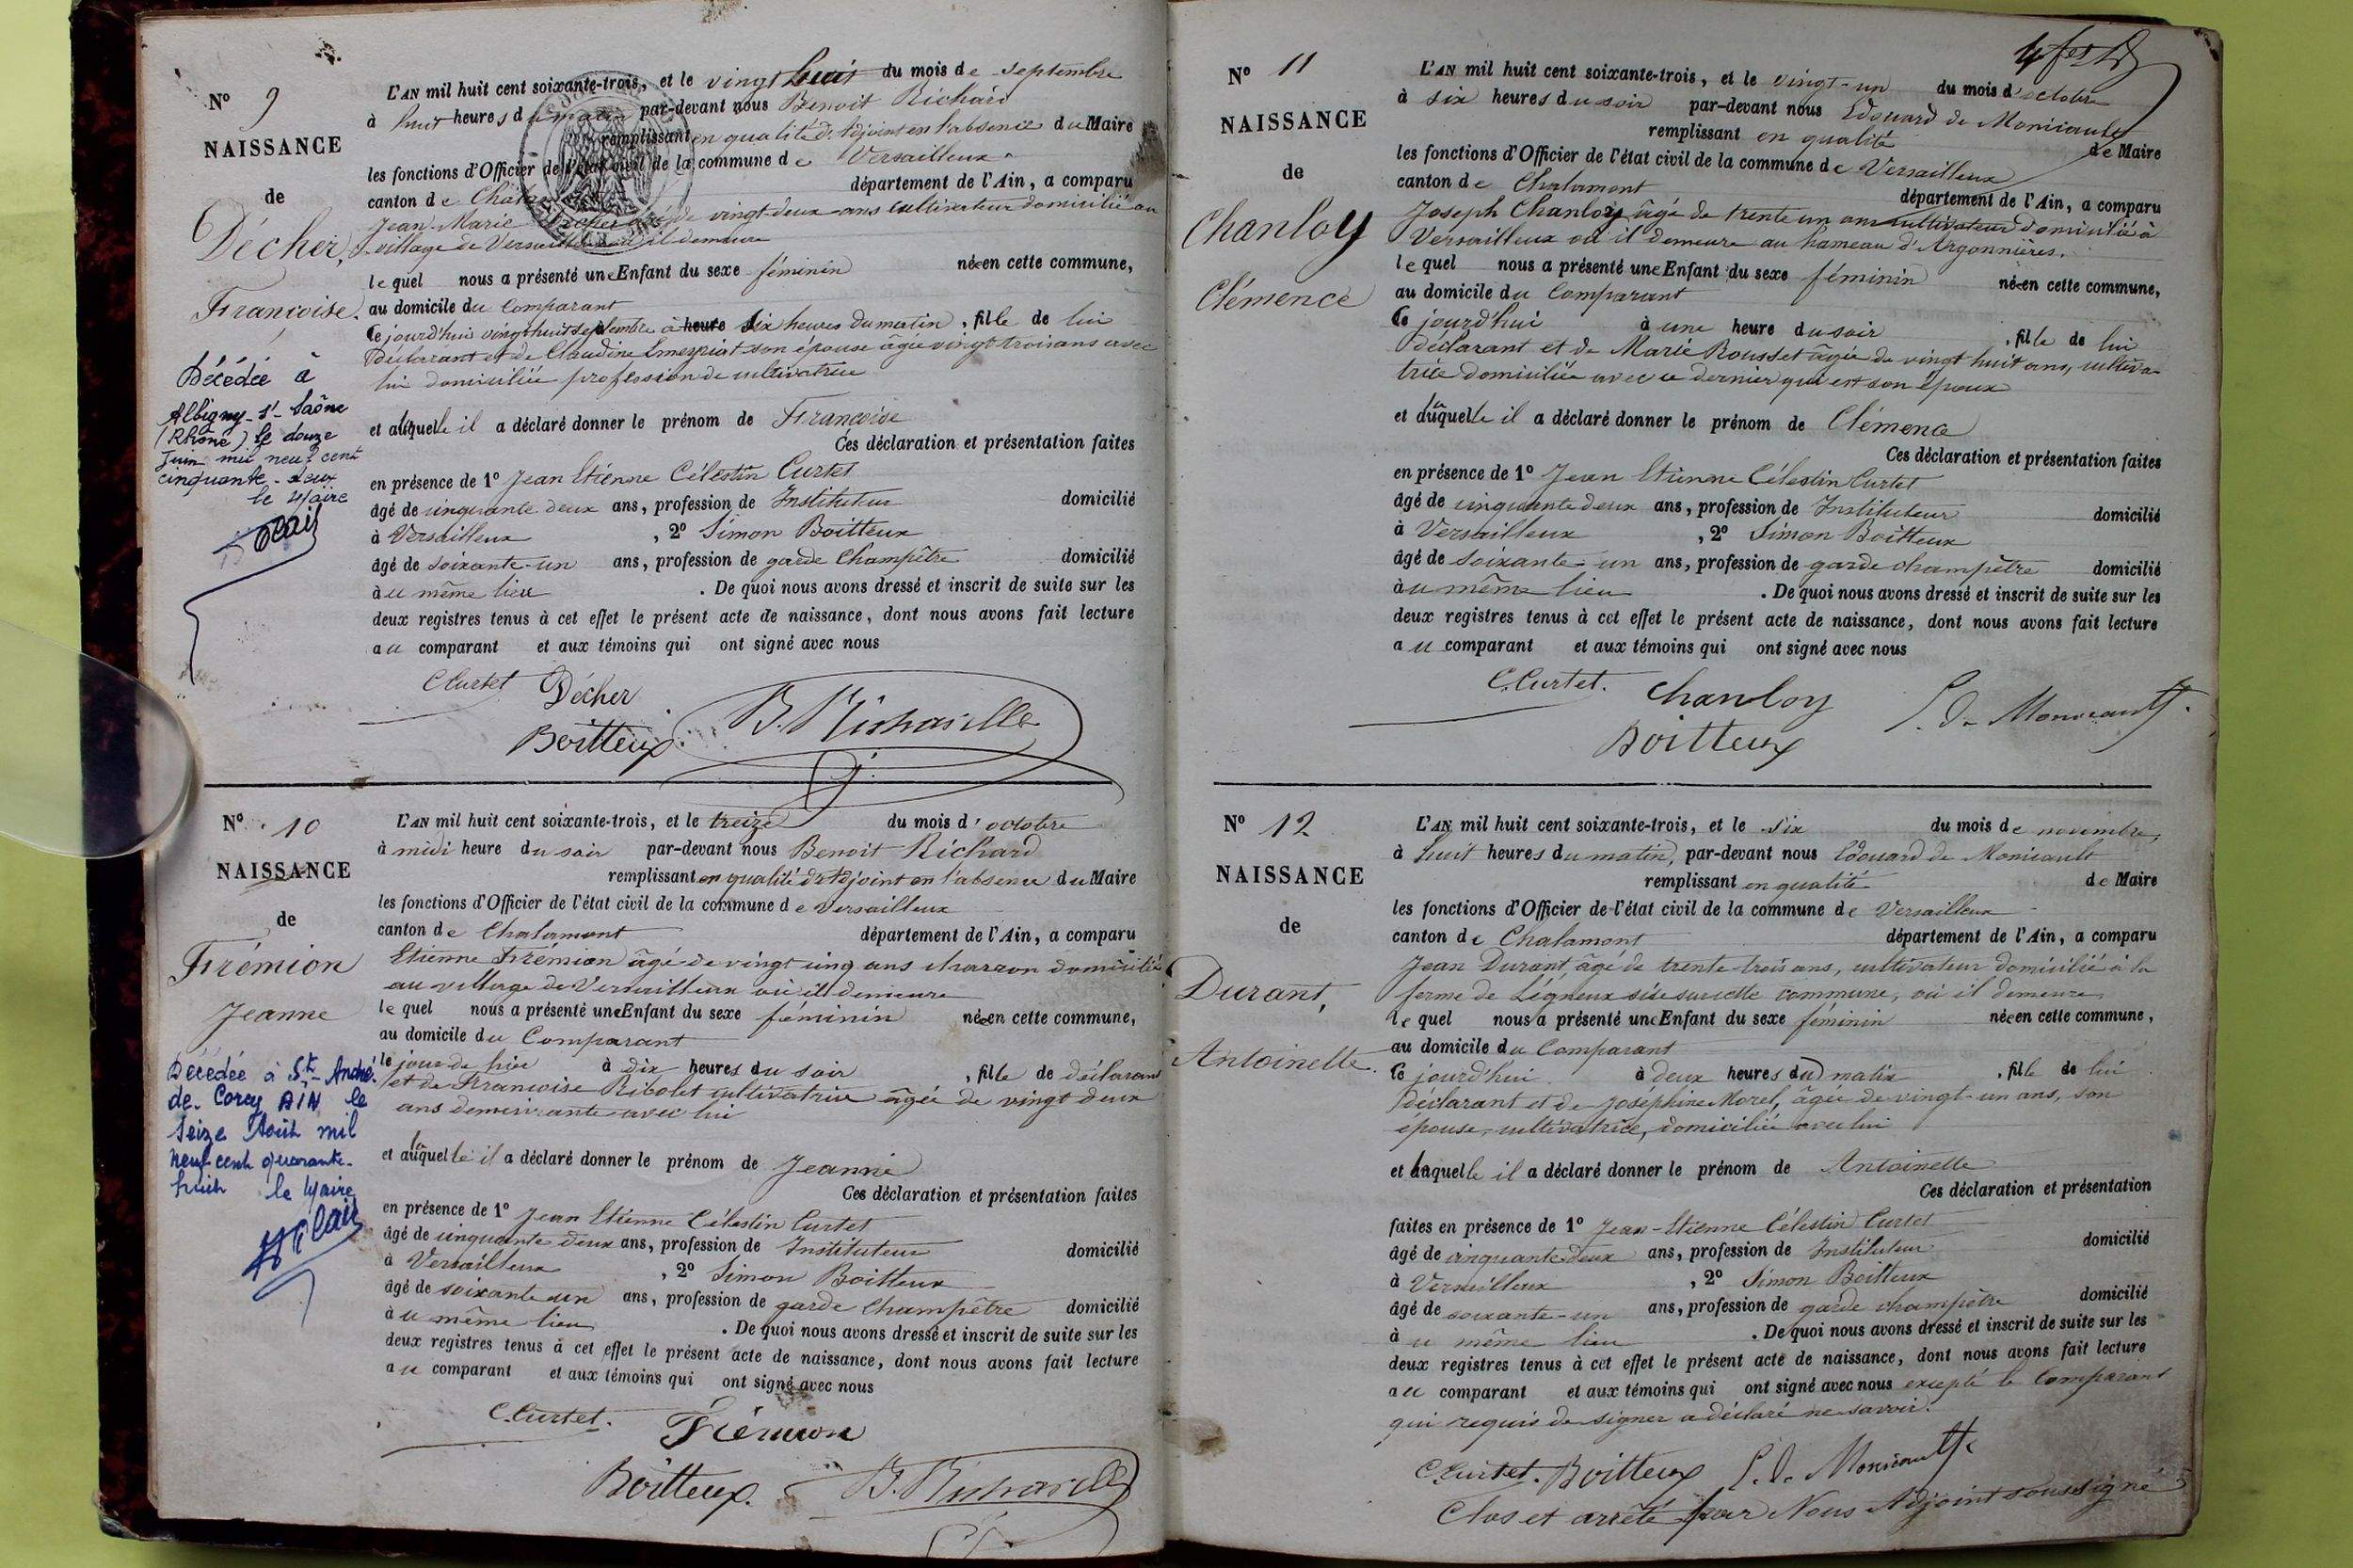 N° 9
NAISSANCE
de
Décher,
Françoise.
Décédée à
Albigny-s'-Saône
(Rhône) le douze
Juin mil neuf cent
cinquante-deux
le Maire
L'AN mil huit cent soixante-trois, et le vingt huit du mois de septembre
à huit heures du matin par-devant nous Benoit Richard
remplissant en qualité d'Adjoint en l'absence du Maire
les fonctions d'Officier de l'état civil de la commune de Versailleux
canton de département de l'Ain, a comparu
Jean Marie Décher âgé de vingt-deux ans cultivateur domicilié au
village de Versailleux où il demeure
lequel nous a présenté une Enfant du sexe féminin née en cette commune,
au domicile du Comparant
Ce jourd'hui vingt huit septembre à heure six heures du matin, fille de lui
déclarant et de Claudine son épouse âgée vingt trois ans avec
lui domiciliée profession de cultivatrice
et à laquelle il a déclaré donner le prénom de Françoise
Ces déclaration et présentation faites
en présence de 1° Jean Etienne Célestin Curtet
âgé de cinquante deux ans, profession de Instituteur domicilié
à Versailleux , 2° Simon Boitteux
âgé de soixante-un ans, profession de garde Champêtre domicilié
au même lieu . De quoi nous avons dressé et inscrit de suite sur les
deux registres tenus à cet effet le présent acte de naissance, dont nous avons fait lecture
au comparant et aux témoins qui ont signé avec nous
C. Curtet Décher
Boitteux
N° 10
NAISSANCE
de
Frémion
Jeanne
Décédée à St-André
de-Corcy AIN le
seize Août mil
neuf cent quarante-
huit le Maire
L'AN mil huit cent soixante-trois, et le treize du mois d'octobre
à midi heure du soir par-devant nous Benoit Richard
remplissant en qualité d'Adjoint en l'absence du Maire
les fonctions d'Officier de l'état civil de la commune de Versailleux
canton de Chalamont département de l'Ain, a comparu
Etienne Frémion âgé de vingt cinq ans charron domicilié
au village de Versailleux où il demeure
lequel nous a présenté une Enfant du sexe féminin née en cette commune,
au domicile du Comparant
le jour de hier à dix heures du soir , fille de déclarant
et de Françoise Ribolet cultivatrice âgée de vingt deux
ans demeurante avec lui
et à laquelle il a déclaré donner le prénom de Jeanne
Ces déclaration et présentation faites
en présence de 1° Jean Etienne Célestin Curtet
âgé de cinquante deux ans, profession de Instituteur domicilié
à Versailleux , 2° Simon Boitteux
âgé de soixante un ans, profession de garde Champêtre domicilié
au même lieu . De quoi nous avons dressé et inscrit de suite sur les
deux registres tenus à cet effet le présent acte de naissance, dont nous avons fait lecture
au comparant et aux témoins qui ont signé avec nous
C. Curtet. Frémion
Boitteux.
N° 11
NAISSANCE
de
Chanloy
Clémence
L'AN mil huit cent soixante-trois, et le vingt-un du mois d'octobre
à six heures du soir par-devant nous Edouard de Monicault
remplissant en qualité de Maire
les fonctions d'Officier de l'état civil de la commune de Versailleux
canton de Chalamont département de l'Ain, a comparu
Joseph Chanloy âgé de trente un ans cultivateur domicilié à
Versailleux où il demeure au hameau d'Argonnières.
lequel nous a présenté une Enfant du sexe féminin née en cette commune,
au domicile du Comparant
Ce jourd'hui à une heure du soir , fille de lui
déclarant et de Marie Rousset âgée de vingt huit ans, cultiva-
trice domiciliée avec ce dernier qui est son époux
et à laquelle il a déclaré donner le prénom de Clémence
Ces déclaration et présentation faites
en présence de 1° Jean Etienne Célestin Curtet
âgé de cinquante deux ans, profession de Instituteur domicilié
à Versailleux , 2° Simon Boitteux
âgé de soixante-un ans, profession de garde champêtre domicilié
au même lieu . De quoi nous avons dressé et inscrit de suite sur les
deux registres tenus à cet effet le présent acte de naissance, dont nous avons fait lecture
au comparant et aux témoins qui ont signé avec nous
C. Curtet. Chanloy
Boitteux E. de Monicault.
N° 12
NAISSANCE
de
Durant,
Antoinette.
L'AN mil huit cent soixante-trois, et le six du mois de novembre,
à huit heures du matin, par-devant nous Edouard de Monicault
remplissant en qualité de Maire
les fonctions d'Officier de l'état civil de la commune de Versailleux
canton de Chalamont département de l'Ain, a comparu
Jean Durant, âgé de trente-trois ans, cultivateur domicilié à la
ferme de Légneux sise sur cette commune, où il demeure
lequel nous a présenté une Enfant du sexe féminin née en cette commune,
au domicile du Comparant
Ce jourd'hui à deux heures du matin , fille de lui
déclarant et de Joséphine Morel, âgée de vingt-un ans, son
épouse, cultivatrice, domiciliée avec lui
et à laquelle il a déclaré donner le prénom de Antoinette
Ces déclaration et présentation
faites en présence de 1° Jean-Etienne Célestin Curtet
âgé de cinquante-deux ans, profession de Instituteur domicilié
à Versailleux , 2° Simon Boitteux
âgé de soixante-un ans, profession de garde champêtre domicilié
au même lieu . De quoi nous avons dressé et inscrit de suite sur les
deux registres tenus à cet effet le présent acte de naissance, dont nous avons fait lecture
au comparant et aux témoins qui ont signé avec nous excepté le Comparant
qui requis de signer a déclaré ne savoir.
C. Curtet. Boitteux E. de Monicault
Clos et arrêté par Nous Adjoint soussigné